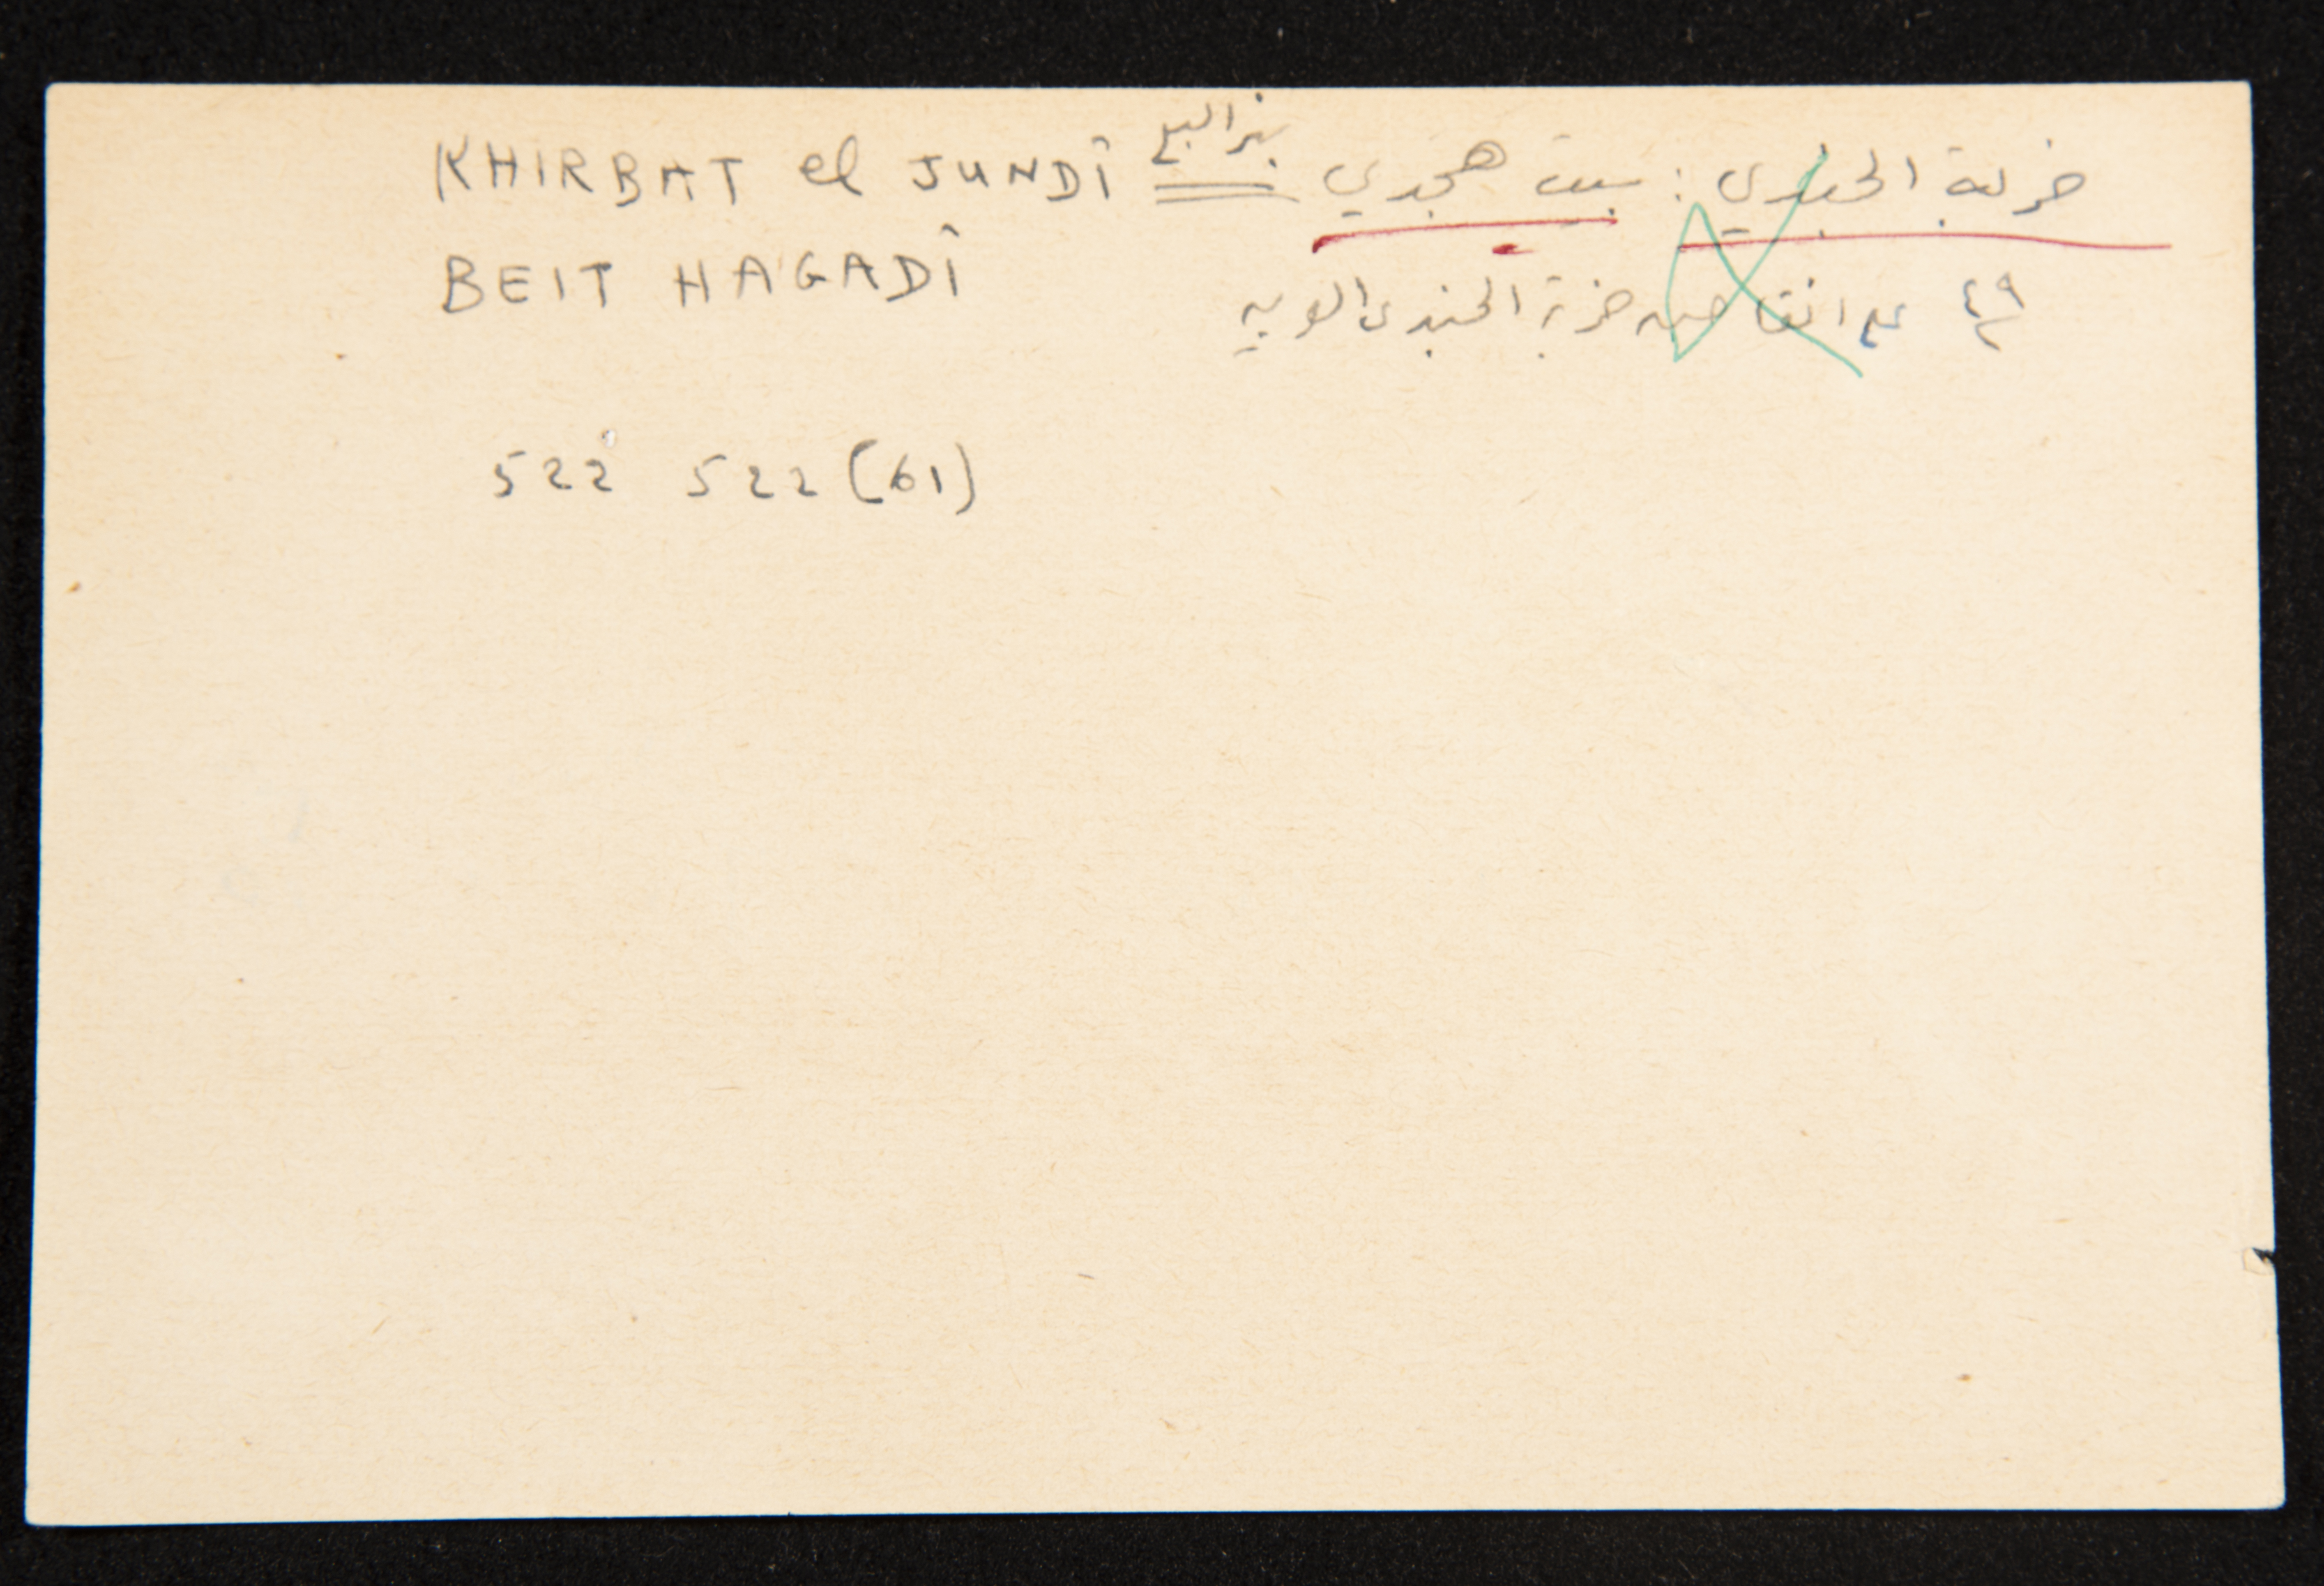 خربة الجندي : بيت هجدي بئر السبع KHIRBAT el JUNDÎ
BEIT HAGADÎ
٤٩ على انقاض خربة الجندي العربية
522 522 (61)